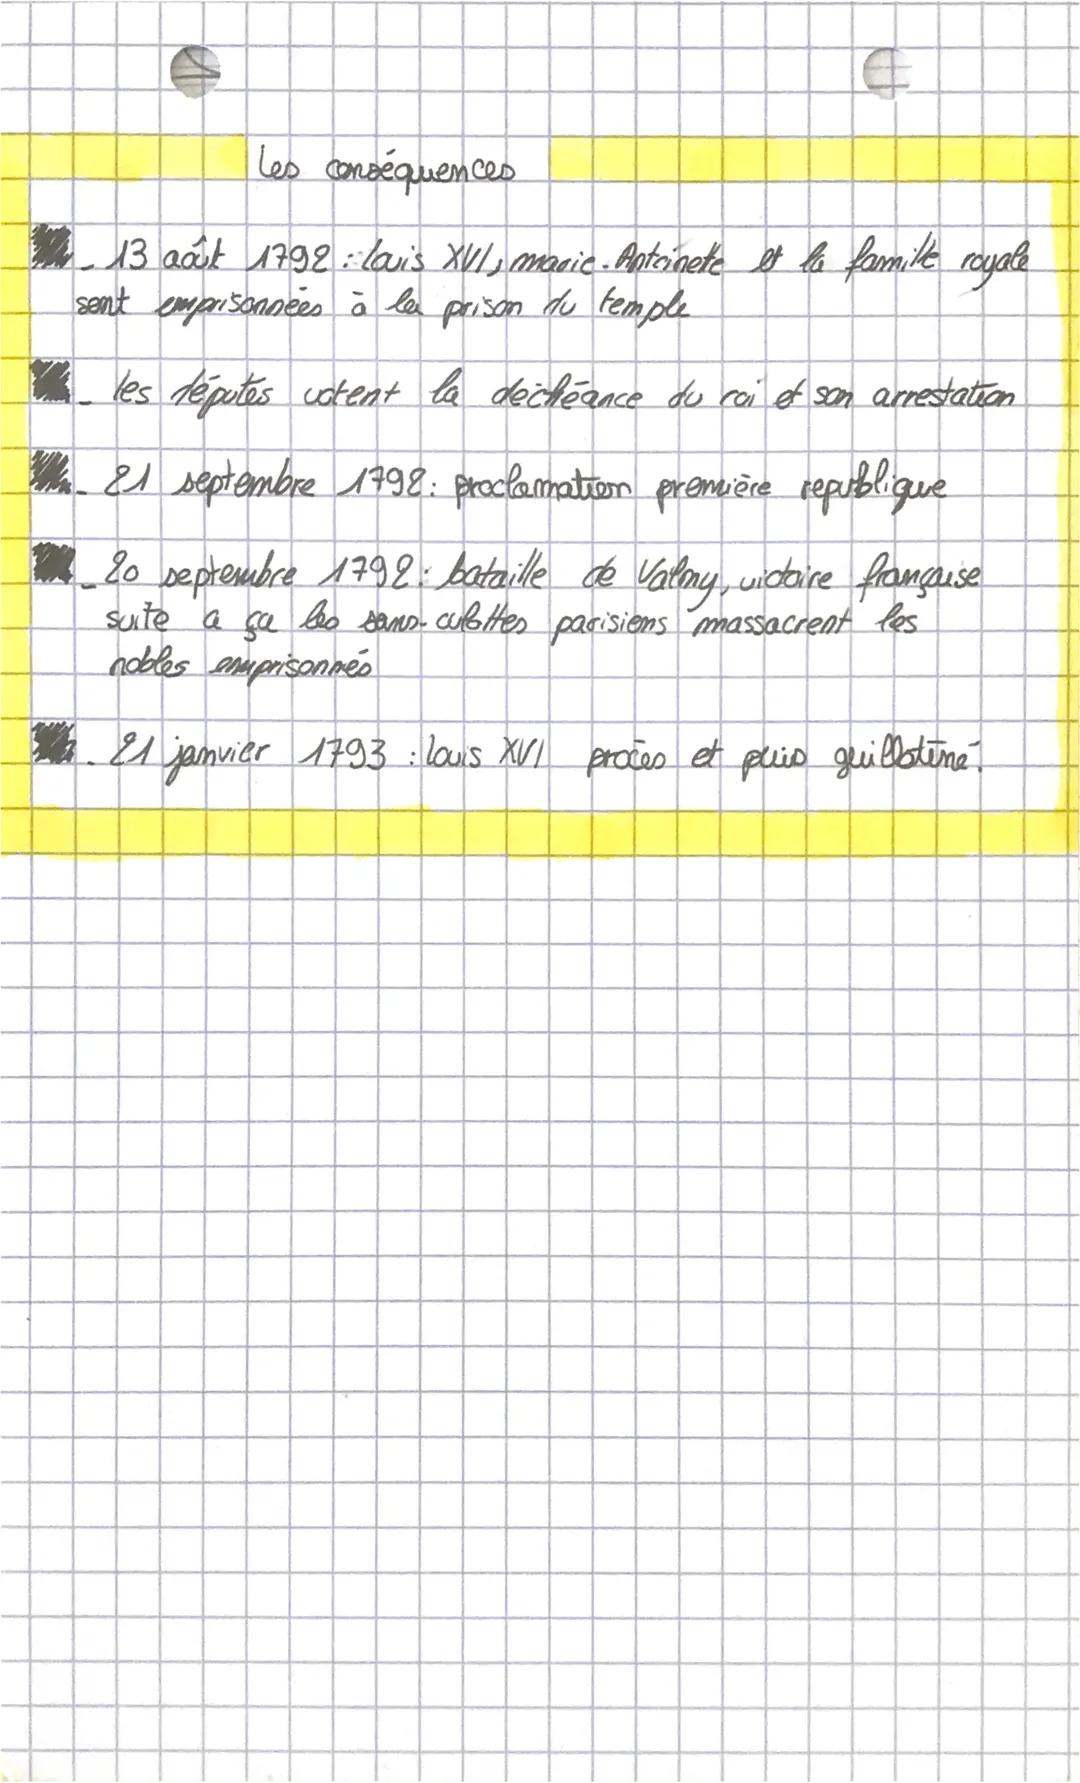 Les conséquences
- 13 août 1792 : Louis XVI, marie-Antoinette et la famille royale
sont emprisonnées à la prison du temple
- les députés votent la dechéance du roi et son arrestation
- 21 septembre 1792 : proclamation première republique
- 20 septembre 1792 : bataille de Valmy, victoire française
suite a ça les sans-culottes parisiens massacrent les
nobles emprisonnés
- 21 janvier 1793 : Louis XVI procès et puis guillotiné.